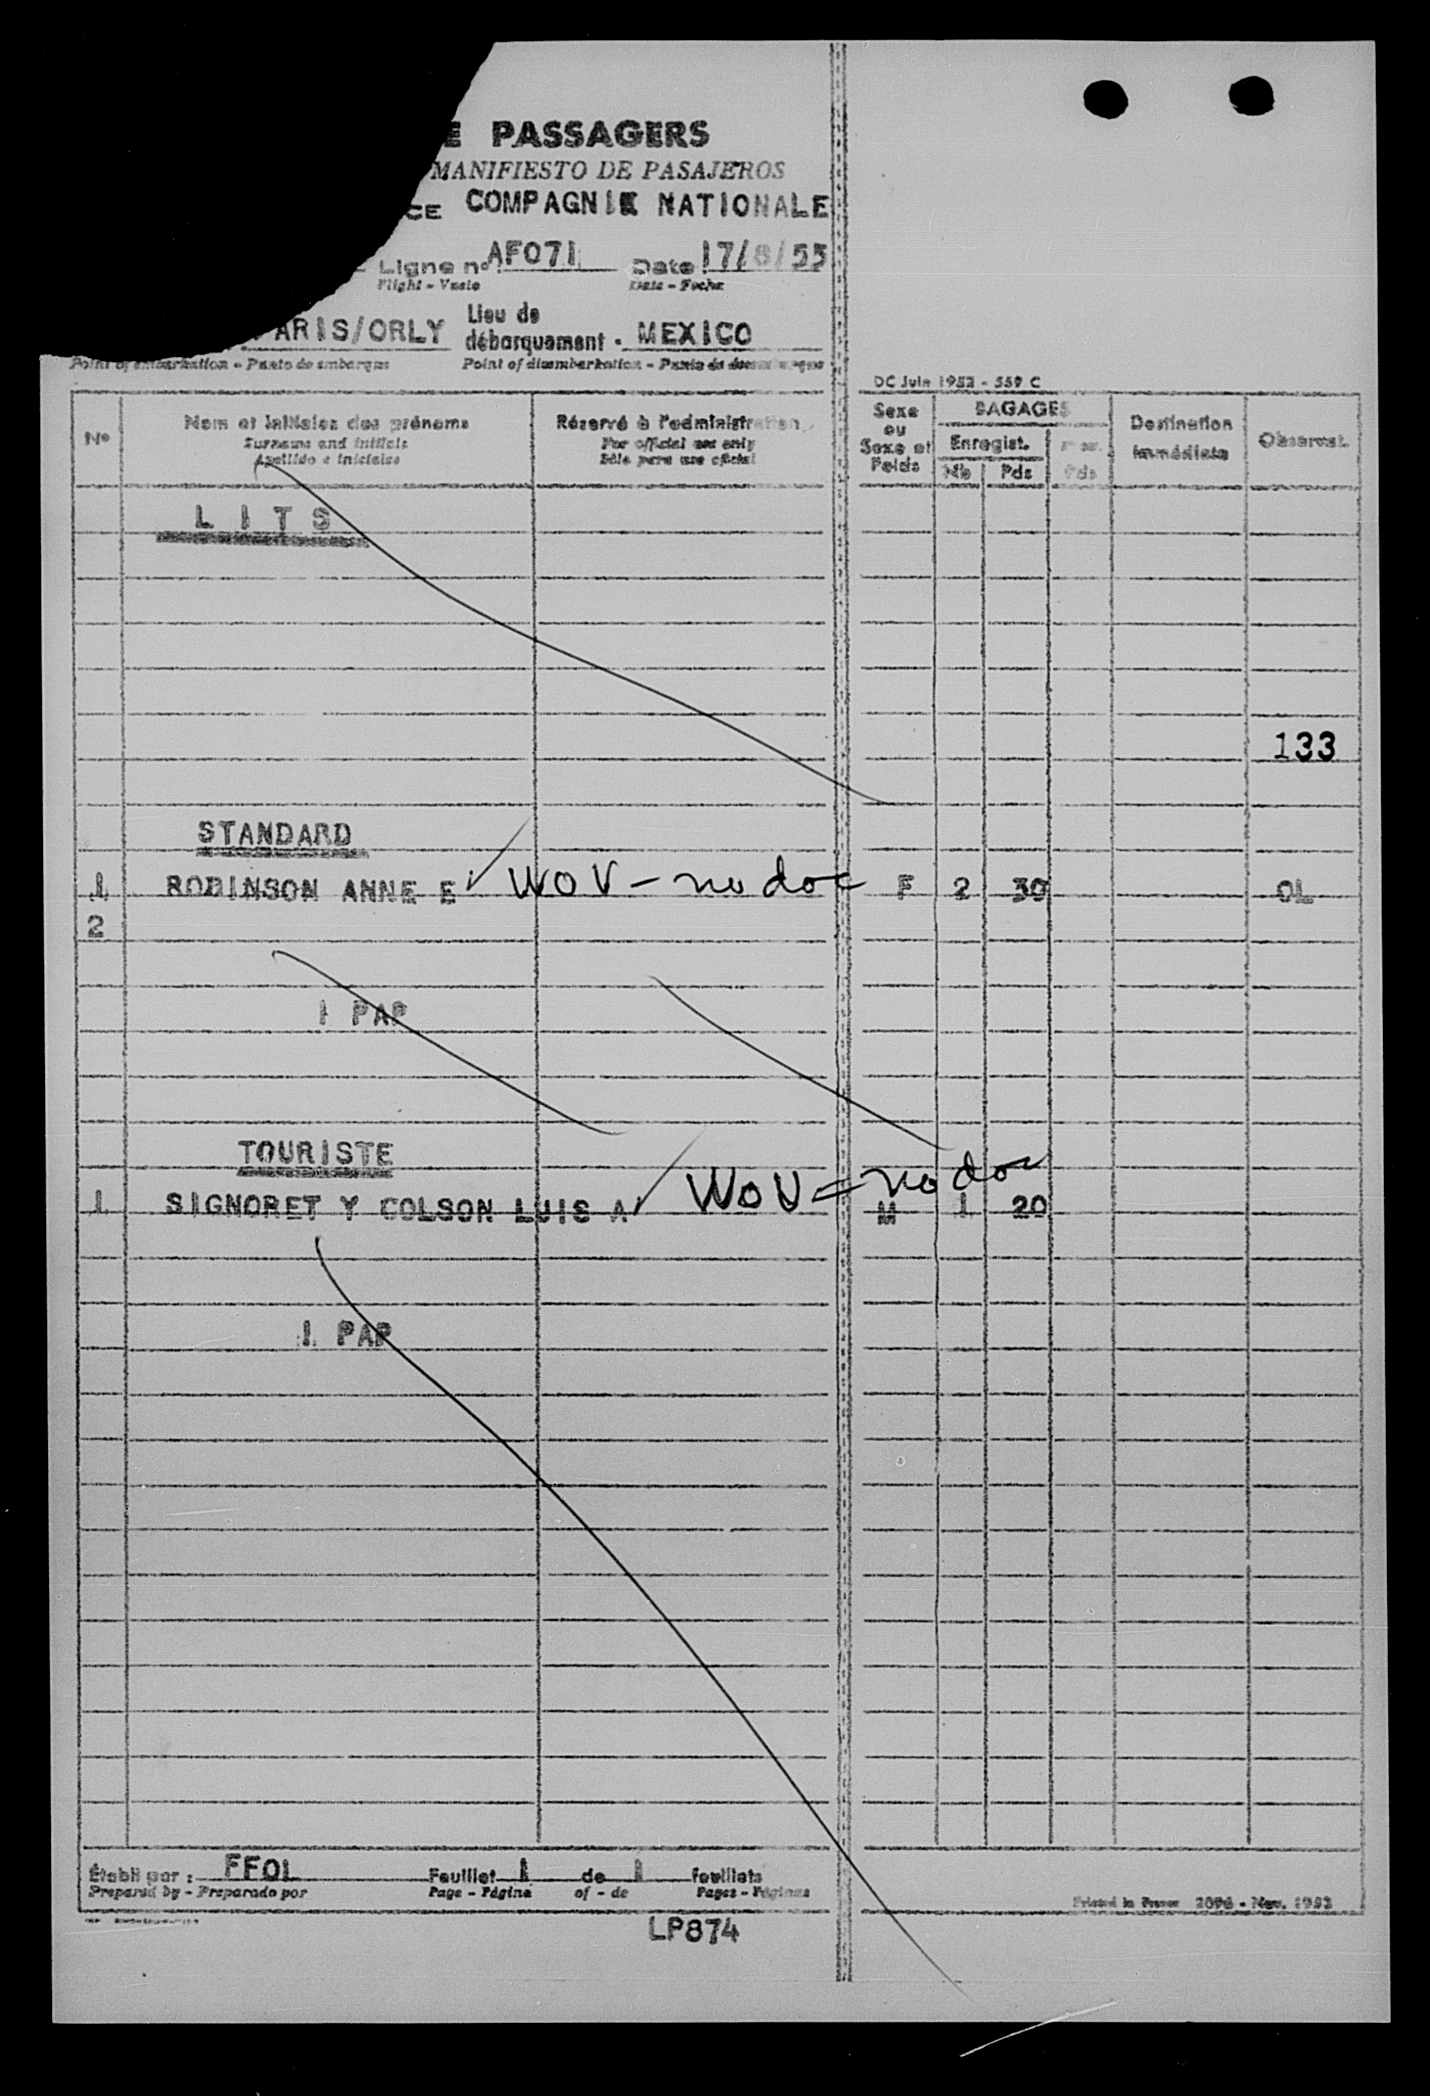 E PASSAGERS
MANIFIESTO DE PASAJEROS
CE COMPAGNIE NATIONALE
Ligne n° AF071 Date 17/8/55
Flight - Vuelo Date - Fecha
ARIS/ORLY Lieu de débarquement - MEXICO
Point of embarkation - Punto de embarque Point of disembarkation - Punto de
DC Juin 1952 - 559 C
N° Nom et initiales des prénoms Réservé à l'administration Sexe ou Sexe et Poids BAGAGES Destination immédiate Observat.
Surname and initials For official use only Enregist.
Apellido e iniciales Sólo para uso oficial Nb Pds Pds
LITS
133
STANDARD
1 ROBINSON ANNE E WOV - no doc F 2 30 OL
2
1 PAP
TOURISTE
1 SIGNORET Y COLSON LUIS A WOV = no doc M 1 20
1 PAP
Établi par : FFOL Feuillet 1 de 1 feuillets
Prepared by - Preparado por Page - Página of - de Pages - Páginas
Printed in France - Nov. 1952
LP874